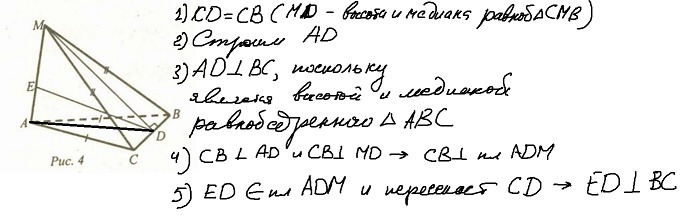 M
E
A
B
D
C
Рис. 4
1) CD = CB (MD – высота и медиана равноб △ CMB)
2) Строим AD
3) AD ⊥ BC, поскольку
является высотой и медианой
равнобедренного △ ABC
4) CB ⊥ AD и CB ⊥ MD → CB ⊥ пл ADM
5) ED ∈ пл ADM и пересекает CD → ED ⊥ BC